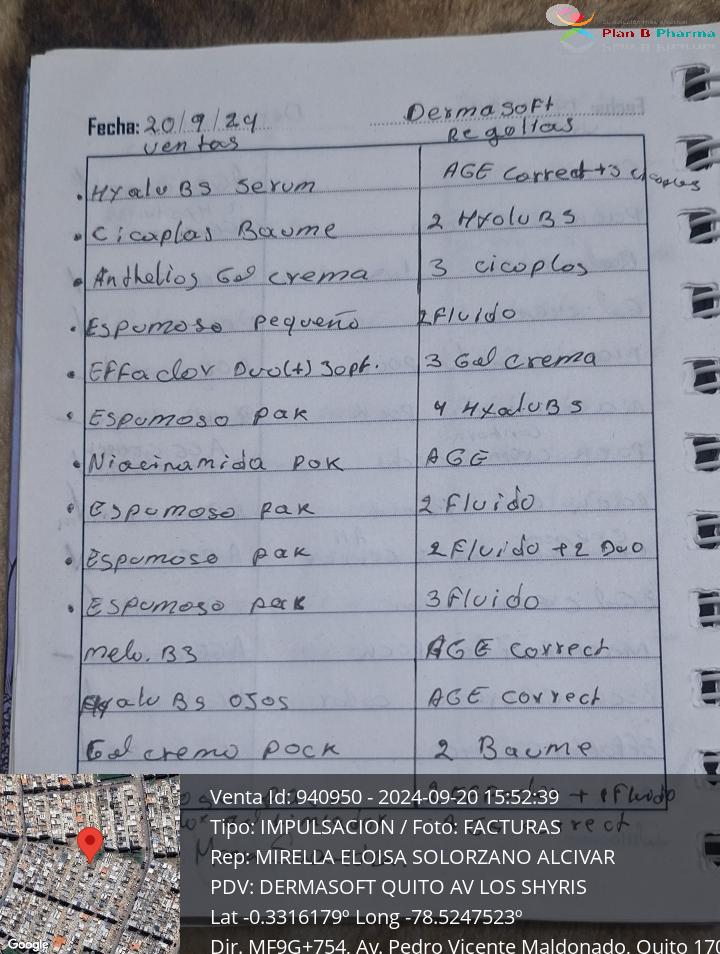 Plan B Pharma
Fecha: 20/9/24 DermaSoft
ventas Regalias
. Hyalu B5 serum AGE Correct +3 cicaplas
. Cicaplas Baume 2 Hyalu B5
. Anthelios Gel crema 3 cicaplas
. Espumoso pequeño 2 Fluido
. Effaclor Duo(+) 30pt. 3 Gel crema
. Espumoso pak 4 Hyalu B5
. Niacinamida pak AGE
. Espumoso pak 2 Fluido
. Espumoso pak 2 Fluido + 2 Duo
. Espumoso pack 3 Fluido
Mela. B3 AGE correct
Hyalu B5 ojos AGE correct
Gel crema pack 2 Baume
+ 1 Fluido
Venta Id: 940950 - 2024-09-20 15:52:39
Tipo: IMPULSACION / Foto: FACTURAS
Rep: MIRELLA ELOISA SOLORZANO ALCIVAR
PDV: DERMASOFT QUITO AV LOS SHYRIS
Lat -0.3316179º Long -78.5247523º
Dir. MF9G+754, Av. Pedro Vicente Maldonado, Quito 170
Google